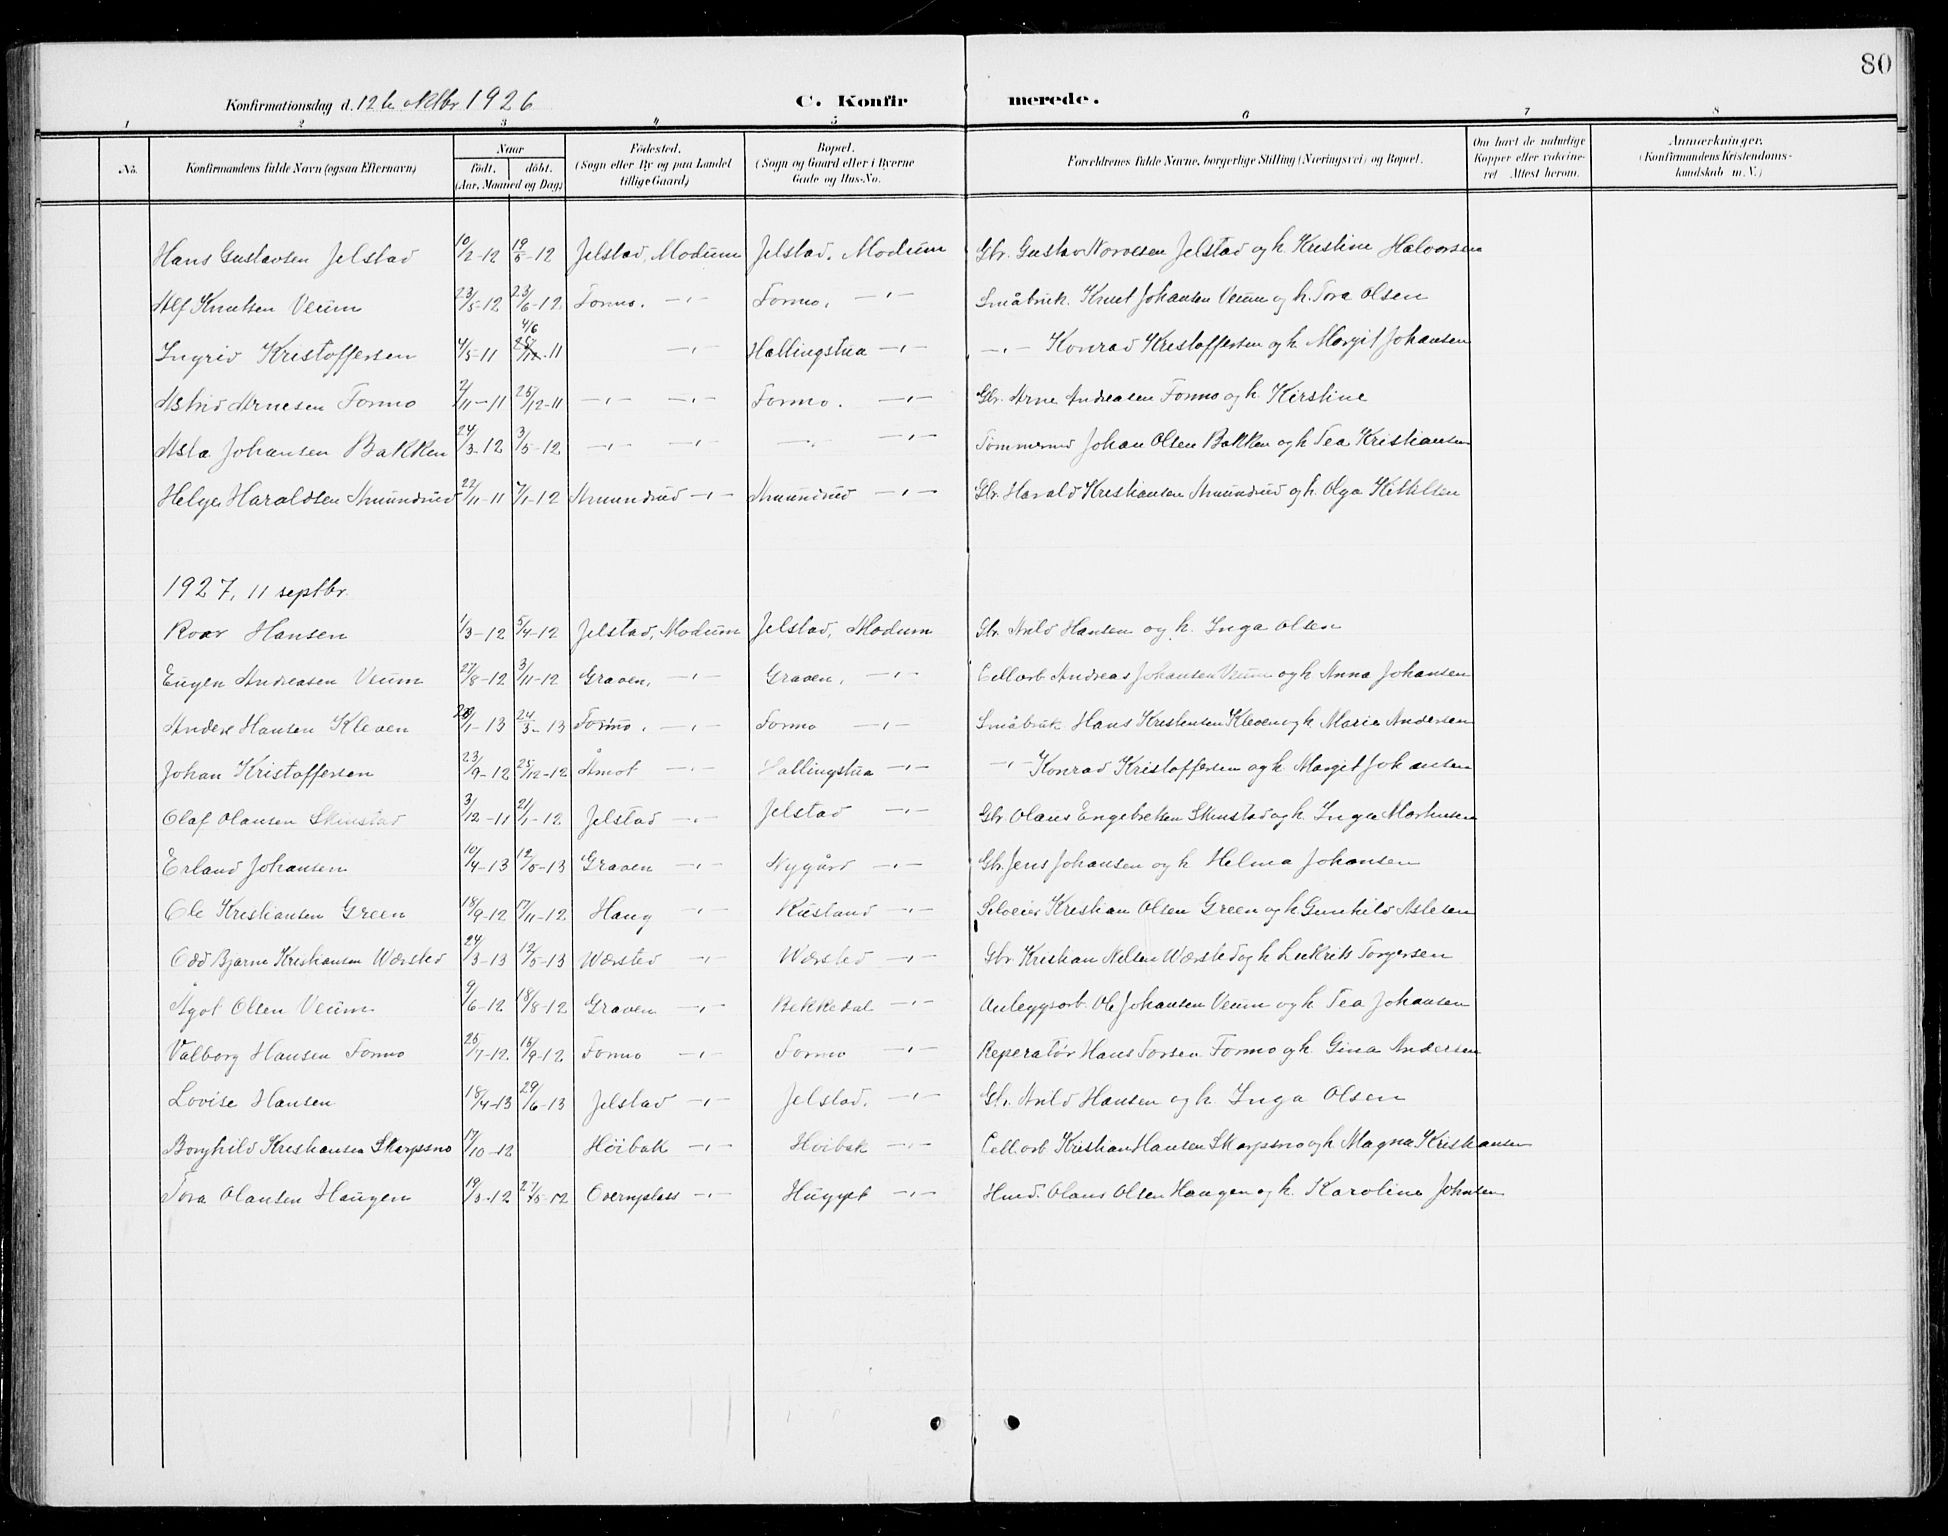 80
Konfirmationsdag d. 12te oktbr. 1926 C. Konfirmerede.
1 2 3 4 5 6 7 8
No. Konfirmandens fulde Navn (ogsaa Efternavn) Naar født. døbt. (Aar, Maaned og Dag) Fødested. (Sogn eller By og paa Landet tillige Gaard) Bopæl. (Sogn og Gaard eller i Byerne Gade og Hus-No. Forældrenes fulde Navne, borgerlige Stilling (Næringsvei) og Bopæl. Om havt de naturlige Kopper eller vakcineret Attest herom. Anmerkninger. (Konfirmandens Kristendomskundskab m. V.)
Hans Gustavsen Jelstad 10/2-12 19/5-12 Jelstad, Modum Jelstad, Modum Gbr. Gustav Jelstad og h. Kristine Halvorsen
Alf Knutsen Veum 23/5-12 23/6-12 Formo, -"- Formo, -"- Småbruk. Knut Johansen Veum og h. Tora Olsen
Ingrid Kristoffersen 4/5-11 4/6 -11 -"- Hallingstua -"- -"- Konrad Kristoffersen og h. Margit Johansen
Astrid Arnesen Formo 2/11-11 25/12-11 -"- -"- Formo. -"- Gbr. Arne Andreasen Formo og h. Kirstine
Asta Johansen Bakken 24/3-12 3/5-12 -"- -"- -"- -"- Tømmermd Johan Olsen Bakken og h. Tea Kristiansen
Helge Haraldsen Amundrud 22/11-11 7/1-12 Amundrud -"- Amundrud -"- Gbr. Harald Kristiansen Amundrud og h. Olga Kittilsen
1927, 11 septbr.
Roar Hansen 1/3-12 5/4-12 Jelstad, Modum Jelstad, Modum Gbr. Arild Hansen og h. Inga Olsen
Eugen Andreasen Veum 27/8-12 3/11-12 Graven, -"- Graven, -"- Cellarb Andreas Johansen Veum og h. Anna Johansen
Anders Hansen Kleven 28/1-13 24/3-13 Formo, -"- Formo -"- Småbruk Hans Kristensen Kleven og h. Marie Andersen
Johan Kristoffersen 23/9-12 25/12-12 Åmot -"- Hallingstua -"- -"- Konrad Kristoffersen og h. Margit Johansen
Olaf Olausen Skinstad 3/12-11 21/1-12 Jelstad -"- Jelstad -"- Gbr. Olaus Engebretsen Skinstad og h. Inga Marthinsen
Erland Johansen 10/4-13 12/5-13 Graven -"- Nygård -"- Gbr. Jens Johansen og h. Helma Johansen
Ole Kristiansen Green 18/9-12 17/11-12 Haug -"- Rustand -"- Selveier Kristian Olsen Green og h. Gunhild Aslesen
Odd Bjarne Kristiansen Wærsted 24/3-13 12/5-13 Wærsted -"- Wærsted -"- Gbr Kristian Nilsen Wærsted og h. Torgersen
Ågot Olsen Veum 9/6-12 18/8-12 Graven -"- Bekkedal -"- Anleggsarb. Ole Johansen Veum og h. Tea Johansen
Valborg Hansen Formo 25/7-12 15/9-12 Formo -"- Formo -"- Reperatør Hans Torsen Formo og h. Gina Andersen
Lovise Hansen 18/4-13 29/6-13 Jelstad -"- Jelstad. -"- Gbr. Arild Hansen og h. Inga Olsen
Borghild Kristiansen Skarpsno 17/10-12 Høibak -"- Høibak -"- Cell.arb Kristian Hansen Skarpsno og h. Magna Kristiansen
Tora Olausen Haugen 19/3-12 27/5-12 Overnplass -"- Hugget -"- Hmd. Olaus Olsen Haugen og h. Karoline Johnsen